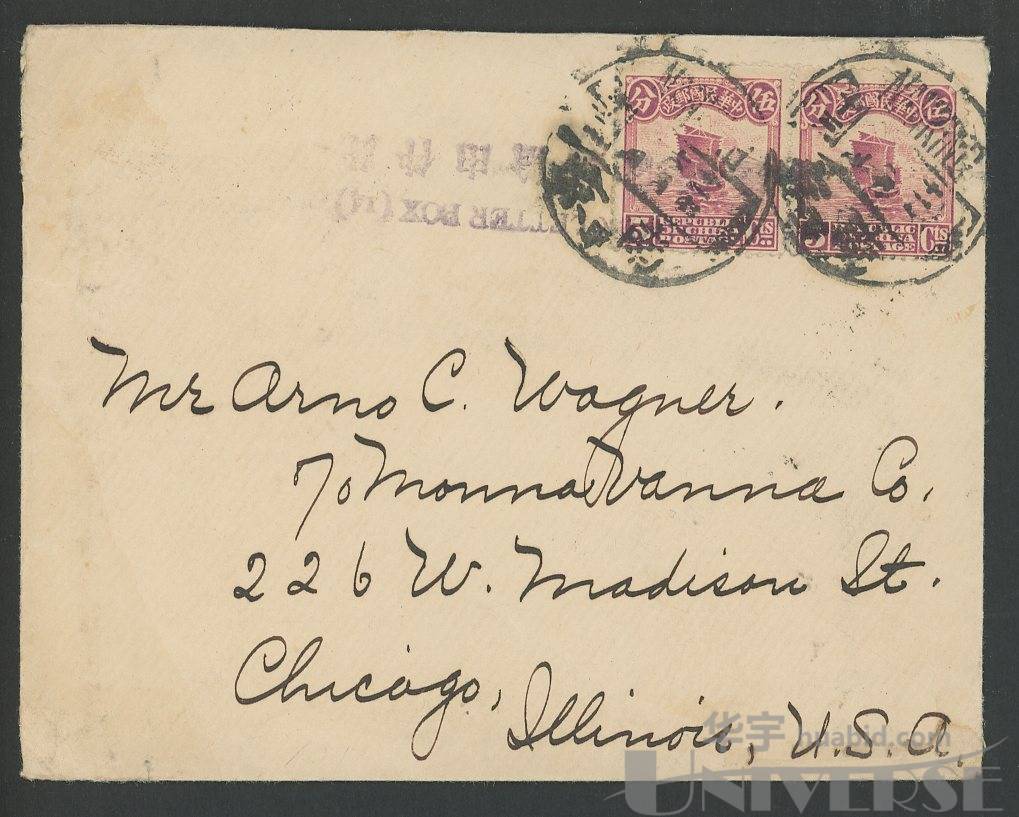 分 伍
中華民國郵政
5 Cts
REPUBLIC
OF CHINA
POSTAGE
分 伍
中華民國郵政
5 Cts
REPUBLIC
OF CHINA
POSTAGE
LETTER BOX (14)
Mr Arno C. Wagner.
℅ Monna Vanna Co.
226 W. Madison St.
Chicago,
Illinois, U.S.A.
华宇 huabid.com
UNIVERSE